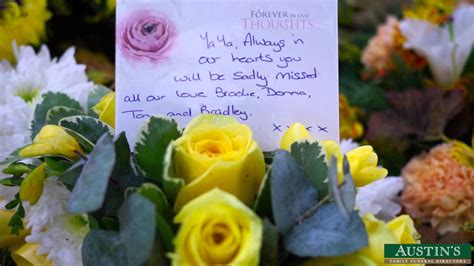 FOREVER IN OUR
THOUGHTS...
YaYa, Always in
our hearts you
will be Sadly missed
all our love Brooke, Donna,
Tony and Bradley.
x x x x
AUSTIN'S
FAMILY FUNERAL DIRECTORS